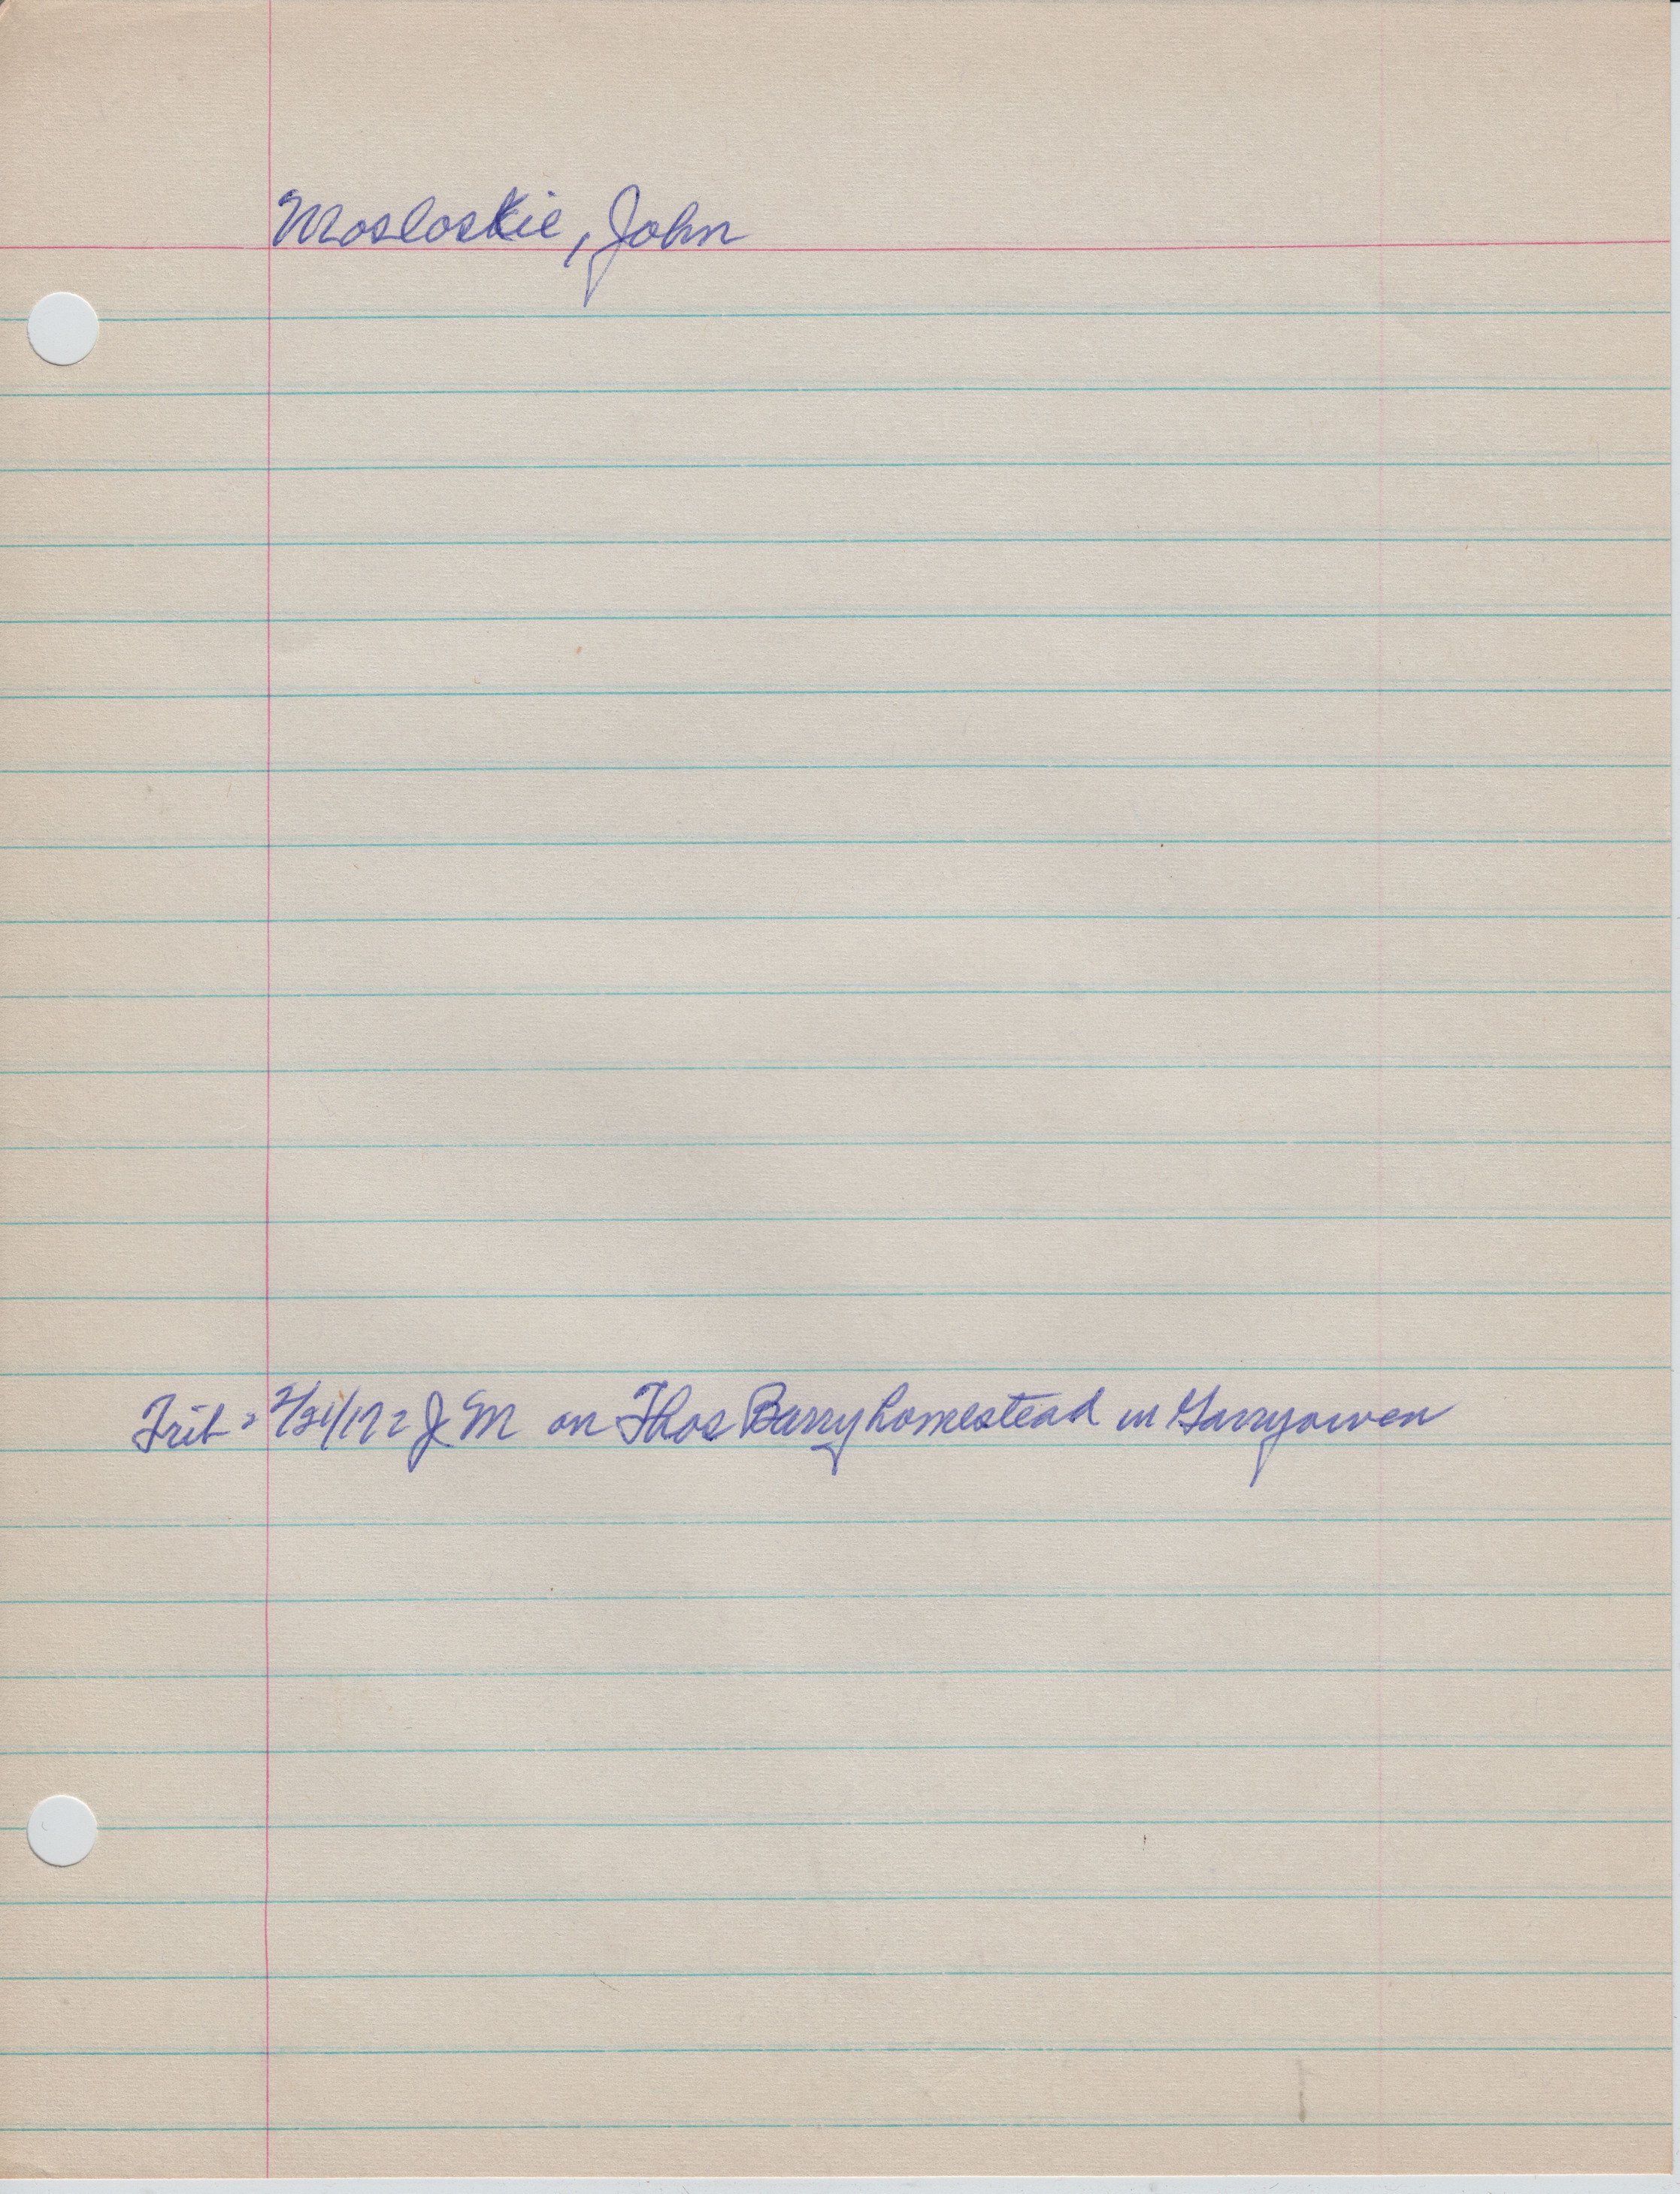 Mosloskie, John
Trib: 2/21/172 J M on Thos Barry homestead in Garryowen